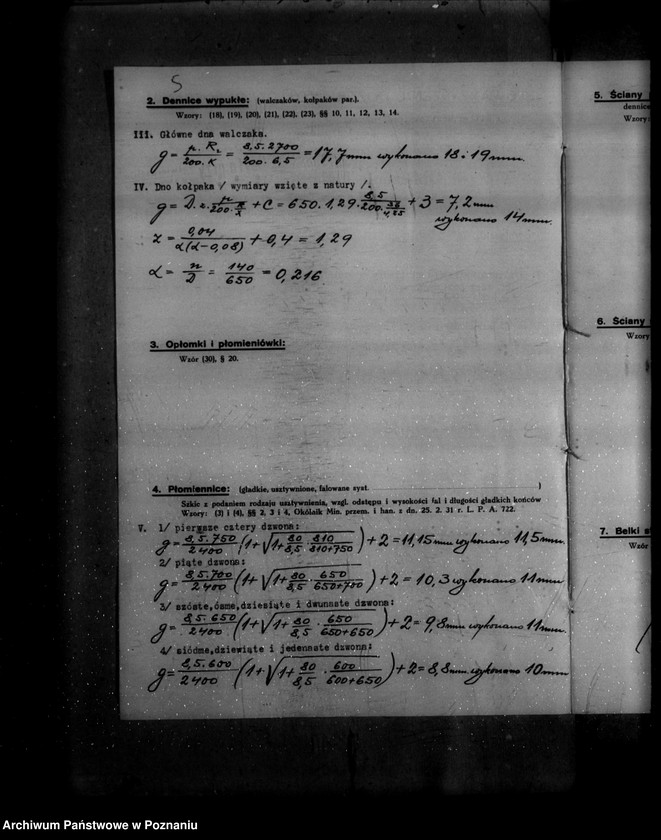 5
2. Dennice wypukłe: (walczaków, kołpaków par.).
Wzory: (18), (19), (20), (21), (22), (23), §§ 10, 11, 12, 13, 14.
III. Główne dna walczaka.
g = p. R₁ / 200. K = 8,5. 2700 / 200. 6,5 = 17,7 mm wykonano 18 i 19 mm.
IV. Dno kołpaka / wymiary wzięte z natury /.
+ C = 650. 1,29. 8,5 / 200. + 3 = 7,2 mm
wykonano 14 mm.
z = 0,04 / α(α-0,08) + 0,4 = 1,29
α = n / D = 140 / 650 = 0,216
3. Opłomki i płomieniówki:
Wzór (30), § 20.
4. Płomiennice: (gładkie, usztywnione, falowane syst. )
Szkic z podaniem rodzaju usztywnienia, wzgl. odstępu i wysokości fal i długości gładkich końców
Wzory: (3) i (4), §§ 2, 3 i 4, Okólnik Min. przem. i han. z dn. 25. 2. 31 r. L. P. A. 722.
V. 1/ pierwsze cztery dzwona:
g = 8,5. 750 / 2400 (1 + √1 + 80 / 8,5 . 810 / 810+750) + 2 = 11,15 mm wykonano 11,5 mm.
2/ piąte dzwono:
g = 8,5. 700 / 2400 (1 + √1 + 80 / 8,5 . 650 / 650+700) + 2 = 10,3 wykonano 11 mm
3/ szóste, ósme, dziesiąte i dwunaste dzwona:
g = 8,5. 650 / 2400 (1 + √1 + 80 / 8,5 . 650 / 650+650) + 2 = 9,8 mm wykonano 11 mm.
4/ siódme, dziewiąte i jedenaste dzwona:
g = 8,5. 600 / 2400 (1 + √1 + 80 / 8,5 . 600 / 600+650) + 2 = 8,8 mm wykonano 10 mm
5. Ściany
dennice
Wzory:
6. Ściany
Wzory
7. Belki
Wzór
Archiwum Państwowe w Poznaniu